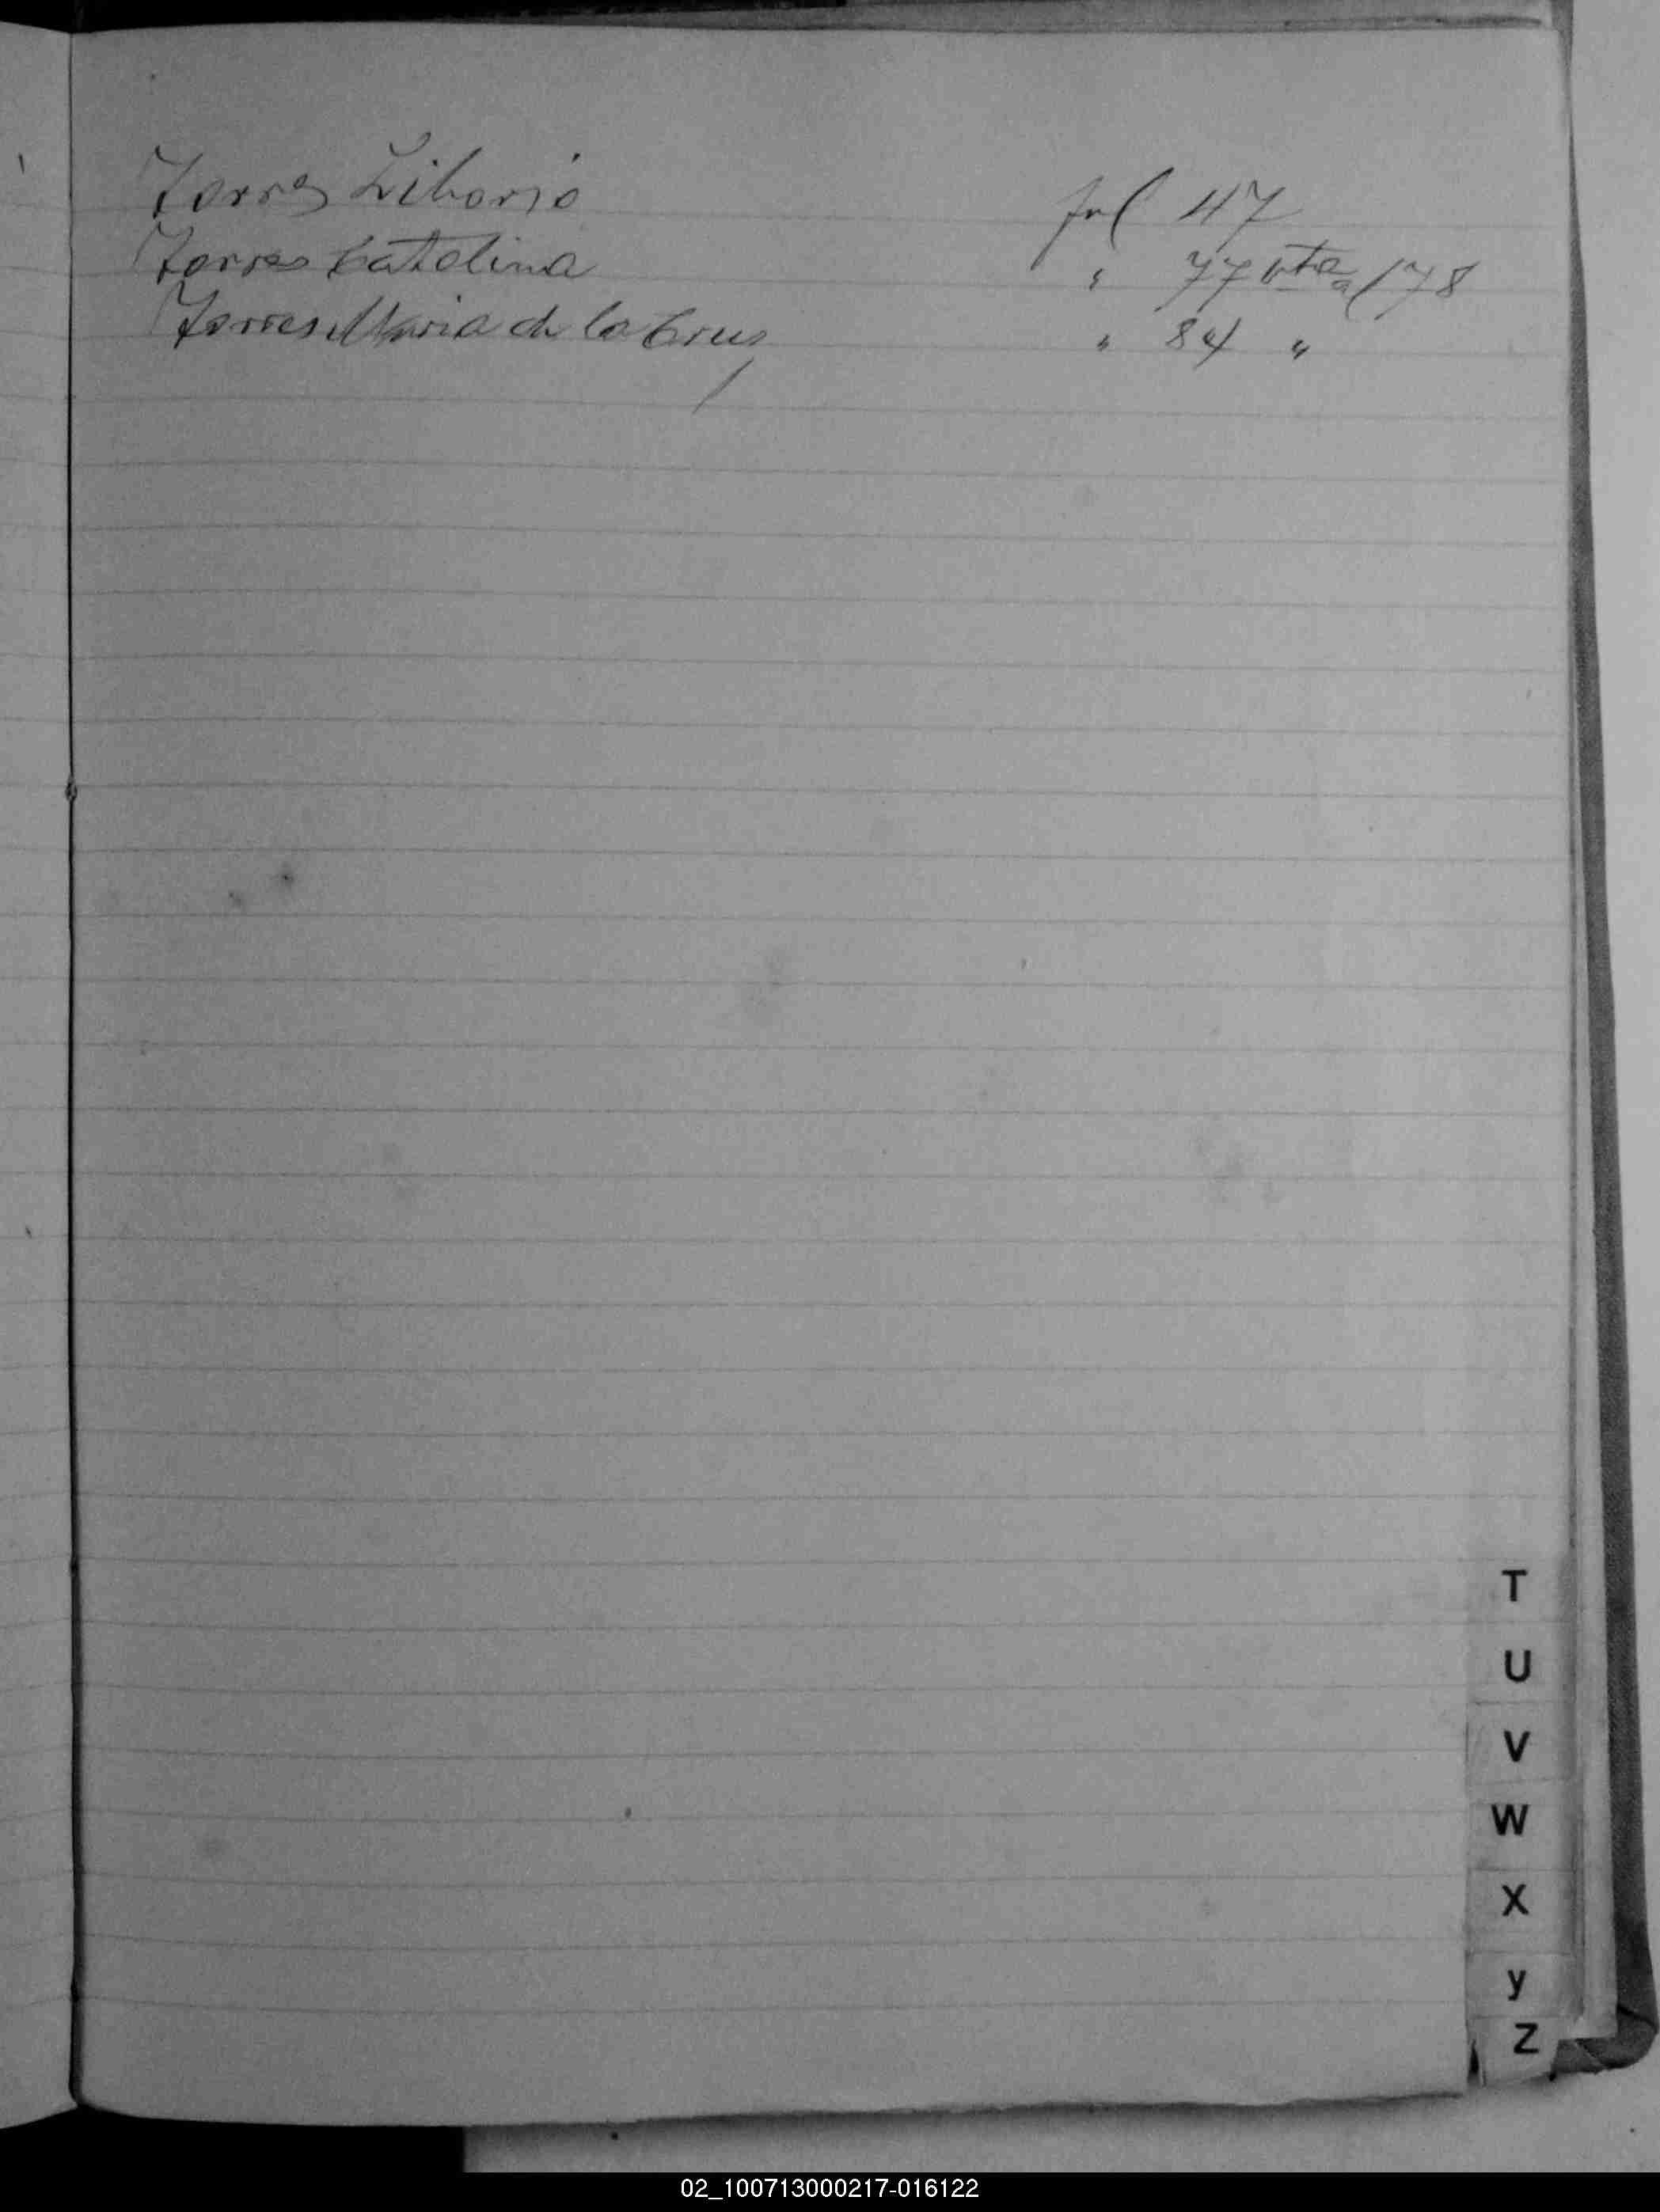 Torres Liborio fol 47
Torres Catalina " 77 vta a /78
Torres Maria de la Cruz " 84 "
T
U
V
W
X
y
Z
02_100713000217-016122